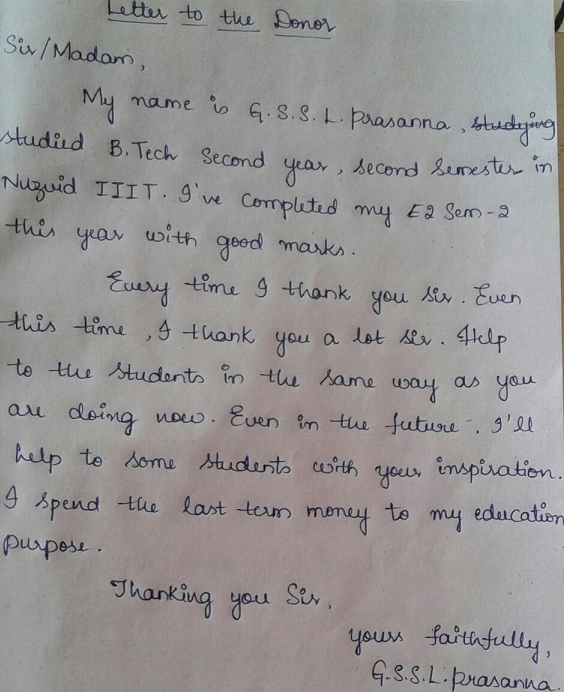 Letter to the Donor
Sir/Madam,
My name is G.S.S.L.Prasanna, studying
studied B.Tech Second year, second semester in
Nuzvid IIIT. I've completed my E2 Sem-2
this year with good marks.
Every time I thank you sir. Even
this time, I thank you a lot sir. Help
to the students in the same way as you
are doing now. Even in the future, I'll
help to some students with your inspiration.
I spend the last term money to my education
purpose.
Thanking you Sir,
yours faithfully,
G.S.S.L.prasanna.